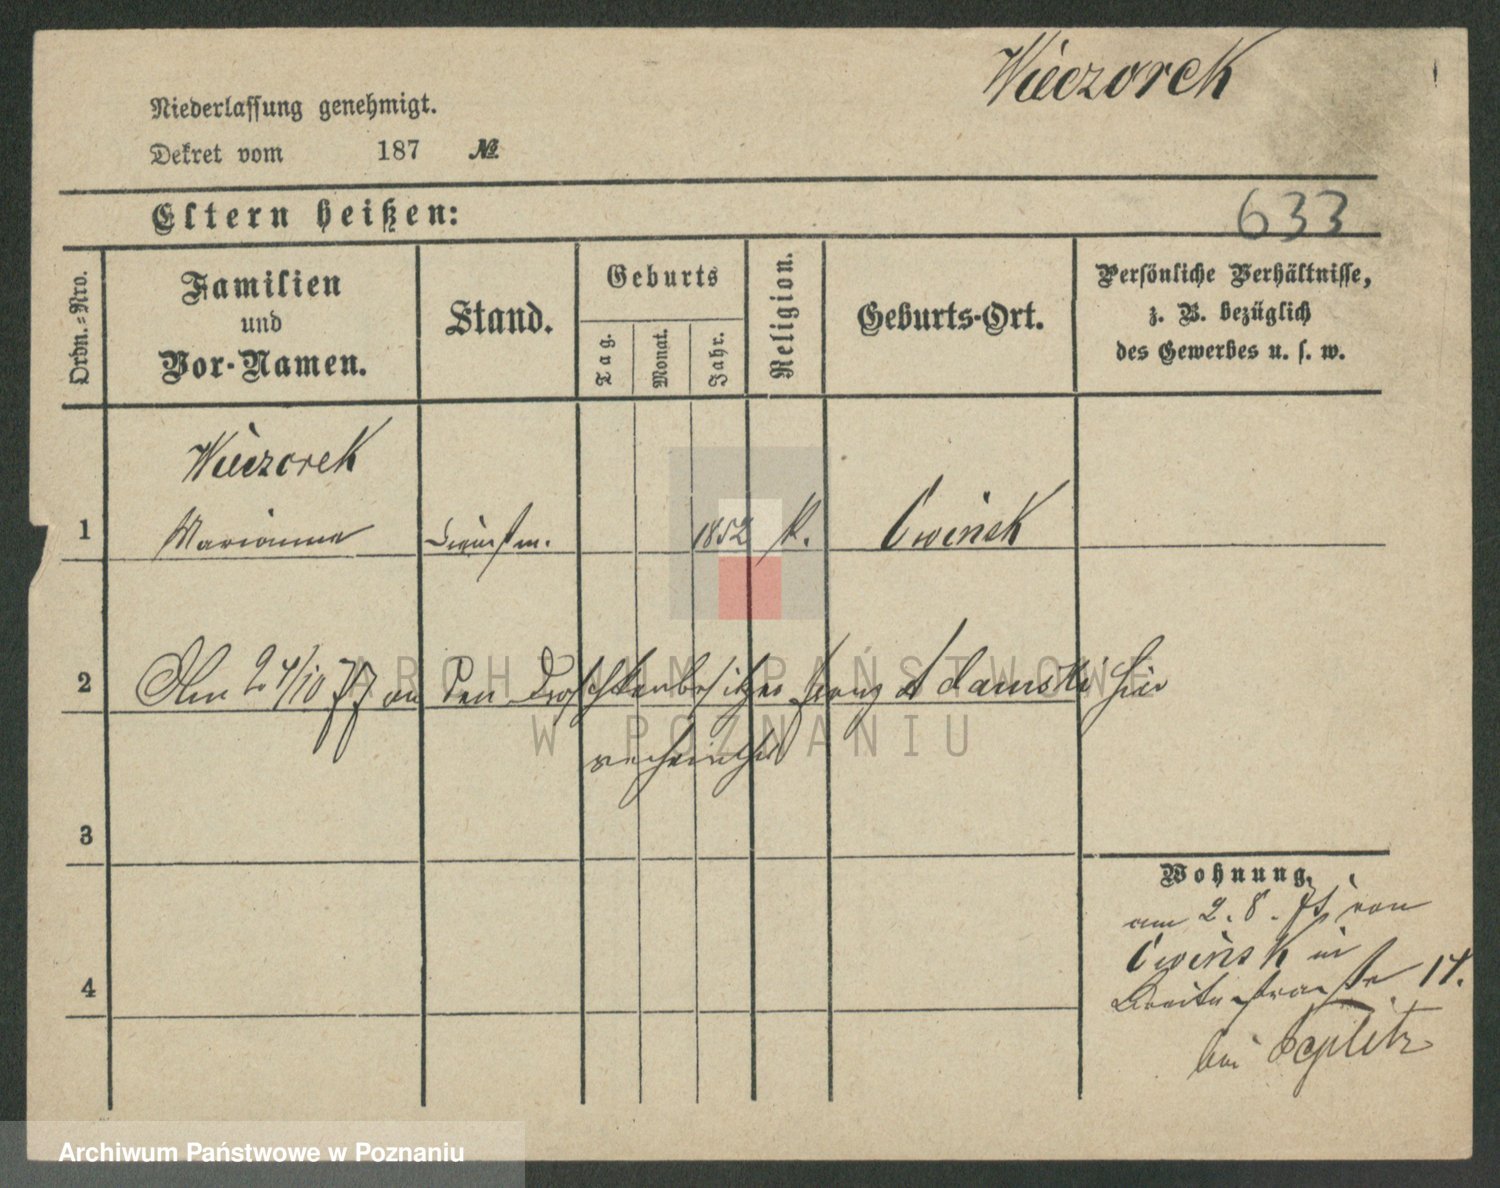 Wieczorek
Niederlassung genehmigt.
Dekret vom 187 №
Eltern heißen:
633
Ordn.-Nro.
Familien und Vor-Namen.
Stand.
Geburts
Tag.
Monat.
Jahr.
Religion.
Geburts-Ort.
Persönliche Verhältnisse,
z. B. bezüglich
des Gewerbes u. s. w.
Wieczorek
1 Marianna Dienstm. 1852 K. Owinsk
2 Am 24/10 77 an den Droschkenbesitzer Franz Adamski hier
verheirathet
3
Wohnung.
am 2. 8. 75 von
Owinsk in
4
Breitestraße 14.
bei
ARCHIWUM PAŃSTWOWE
W POZNANIU
Archiwum Państwowe w Poznaniu